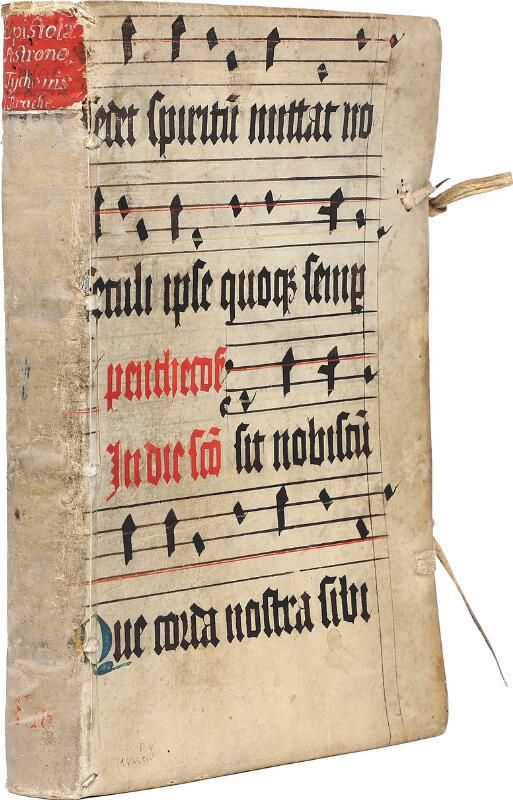 Epistolæ
Astrono,
Tychonis
Brache.
sedet spiritū mittat no
seculi ipse quoqꝫ semꝑ
penthecos
In die scō sit nobiscū
Que corda nostra sibi